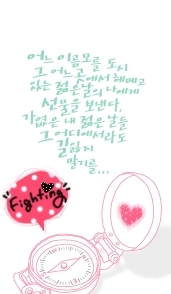 어느 이름모를 도시
그 어느 곳에서 헤매고
있는 젊은날의 나에게
선물을 보낸다.
가엾은 내 젊은날들
그 어디에서라도
길잃지
말기를...
Fighting